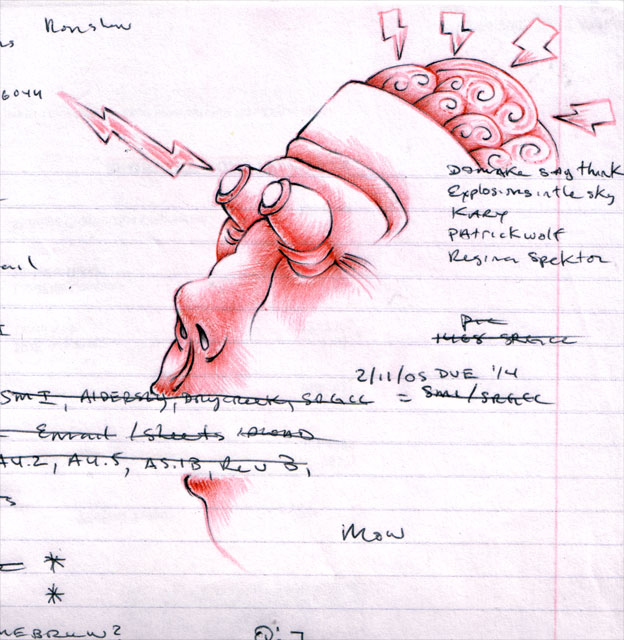 6044
Do make say think
Explosions in the sky
KARY
Patrick wolf
Regina Spektor
ail
2/11/05 DUE 1/4
SMI, AIDERSLY, Drycreek, SRGCC = SMI/SRGCC
Email / sheets UPLOAD
A4.2, A4.5, A5.1B, Rev B,
mow
*
*
MEBREW?